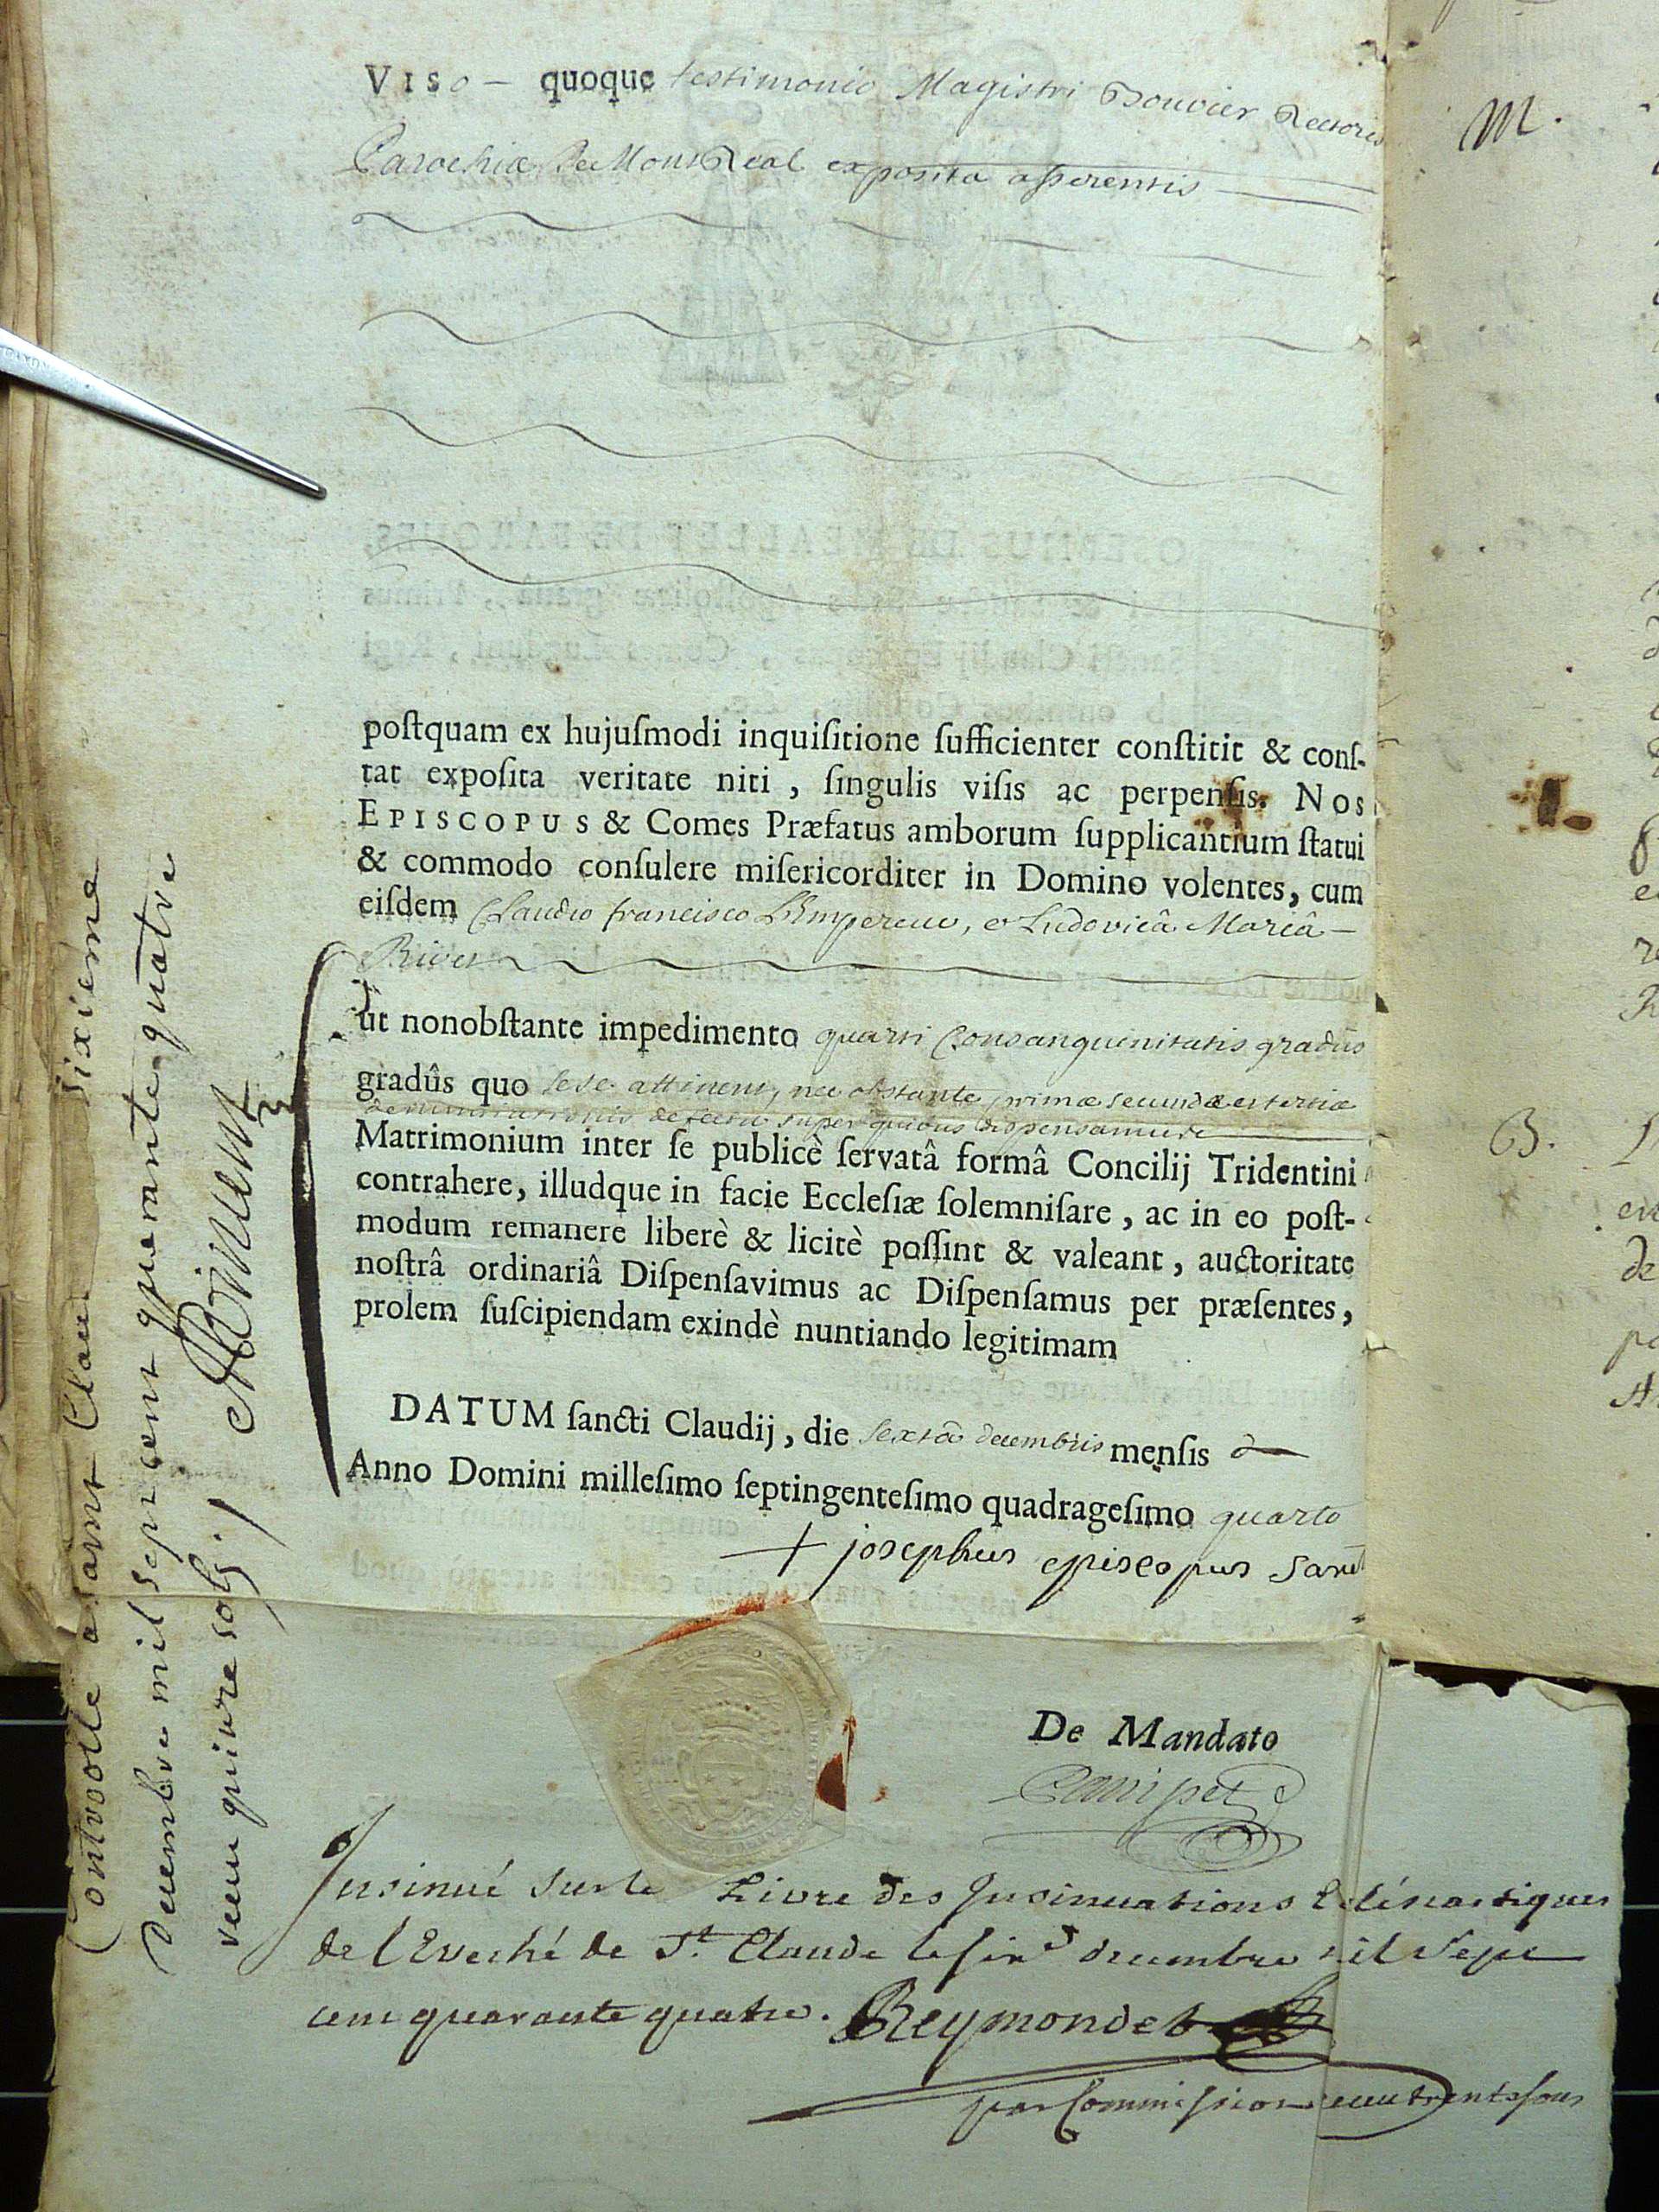 VISO — quoque testimonio Magistri Bouvier Rectoris
Parochiæ de MontReal exposita asserentis
postquam ex hujuſmodi inquiſitione ſufficienter conſtitit & conſ-
tat expoſita veritate niti , ſingulis viſis ac perpenſis. NOS
EPISCOPUS & Comes Præfatus amborum ſupplicantium ſtatui
& commodo conſulere miſericorditer in Domino volentes, cum
eiſdem Claudio francisco L'Empereur, et Ludovicâ Mariâ —
Rivet
ut nonobſtante impedimento quarti Consanguinitatis gradûs
gradûs quo sese attinent, nec obstante primæ secundæ et tertiæ
denuntiationis defectu super quibus dispensamus
Matrimonium inter ſe publicè ſervatâ formâ Concilij Tridentini
contrahere, illudque in facie Eccleſiæ ſolemniſare , ac in eo poſt-
modum remanere liberè & licitè poſſint & valeant , auctoritate
noſtrâ ordinariâ Diſpenſavimus ac Diſpenſamus per præſentes,
prolem ſuſcipiendam exindè nuntiando legitimam
DATUM ſancti Claudij, die sexta decembris mensis
Anno Domini milleſimo ſeptingenteſimo quadrageſimo quarto
+ josephus episcopus
De Mandato
Insinué sur le Livre des Insinuations Eclésiastiques
de l'Eveché de St. Claude le six decembre mil sept
cent quarante quatre. Reymondet
par Commission trente sous
Controollé a saint Claude sixieme
Decembre mil sept cent quarante quatre
quinze sols
M.
B.